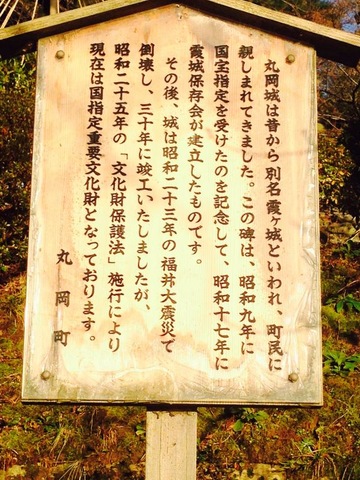 丸岡城は昔から別名霞ヶ城といわれ、町民に
親しまれてきました。この碑は、昭和九年に
国宝指定を受けたのを記念して、昭和十七年に
霞城保存会が建立したものです。
その後、城は昭和二十三年の福井大震災で
倒壊し、三十年に竣工いたしましたが、
昭和二十五年の「文化財保護法」施行により
現在は国指定重要文化財となっております。
丸岡町